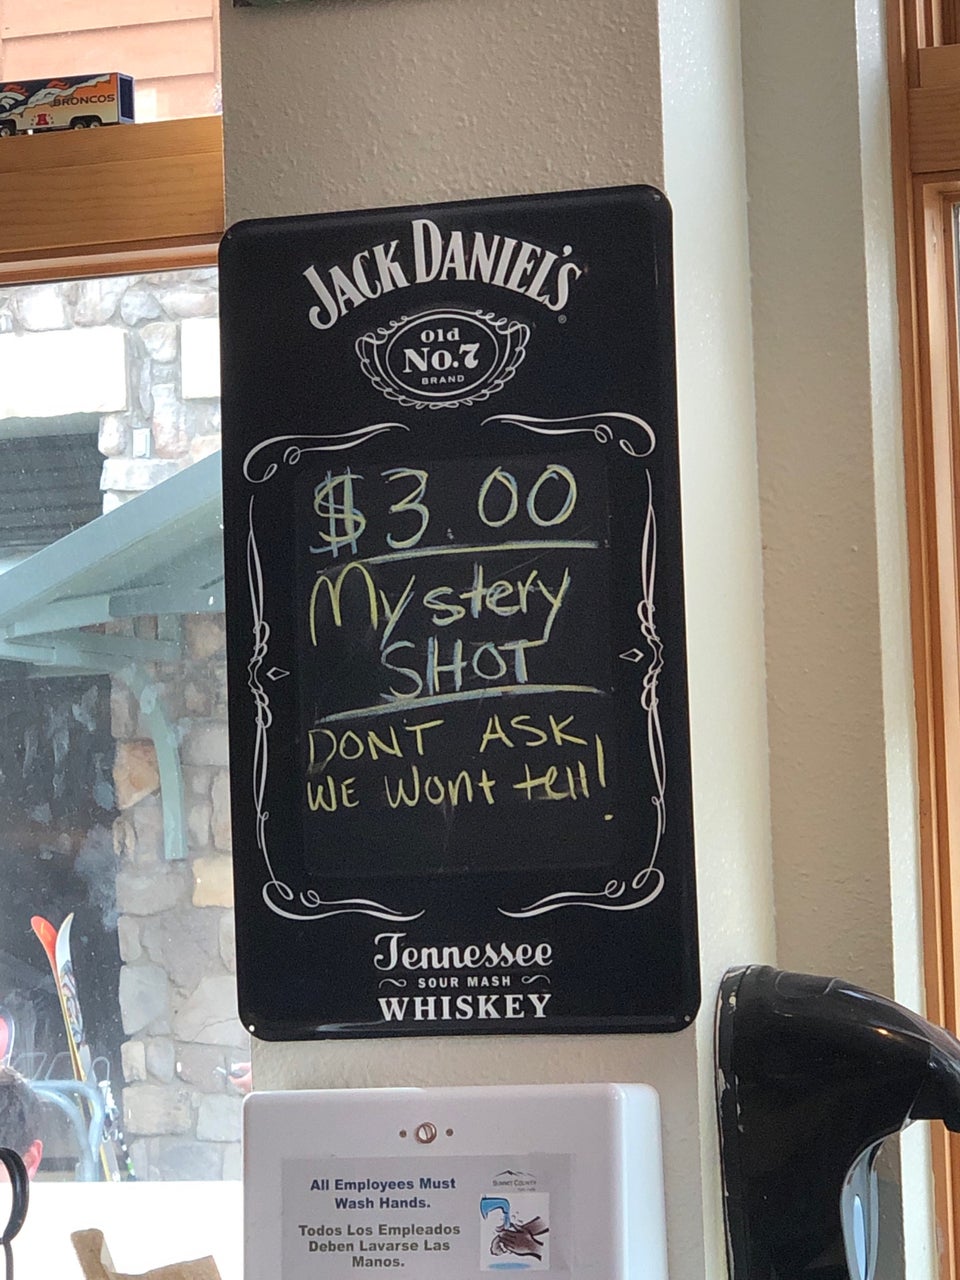 BRONCOS
JACK DANIEL'S
Old
No.7
BRAND
$3.00
Mystery
SHOT
DONT ASK
WE Wont tell!
Tennessee
SOUR MASH
WHISKEY
All Employees Must
Wash Hands.
Todos Los Empleados
Deben Lavarse Las
Manos.
SUMMIT COUNTY